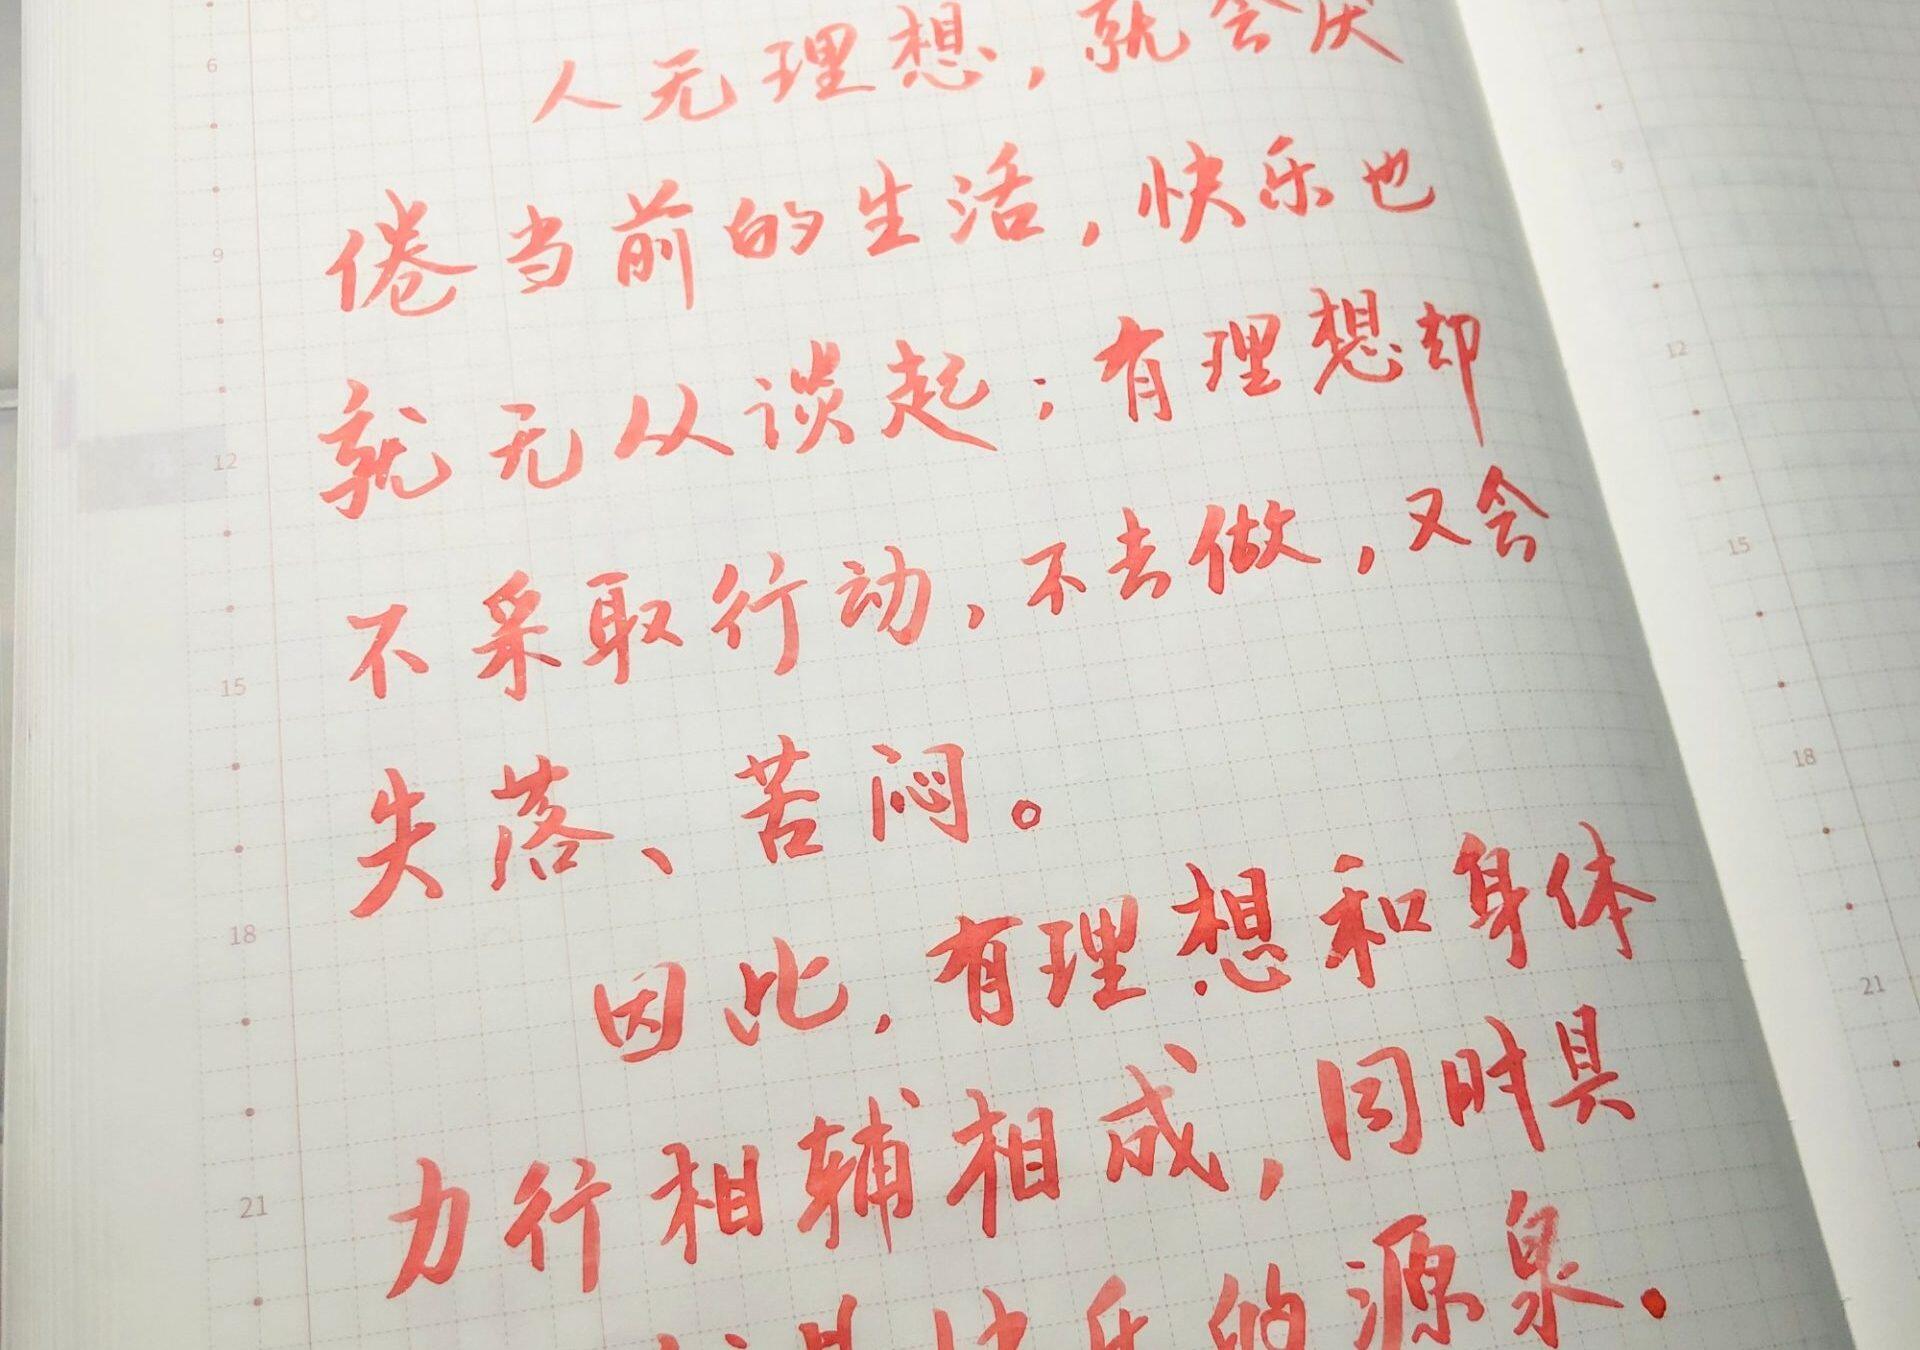 人无理想，就会厌
倦当前的生活，快乐也
就无从谈起；有理想却
不采取行动，不去做，又会
失落、苦闷。
因此，有理想和身体
力行相辅相成，同时具
是快乐的源泉.
6
9
12
15
18
21
9
12
15
18
21